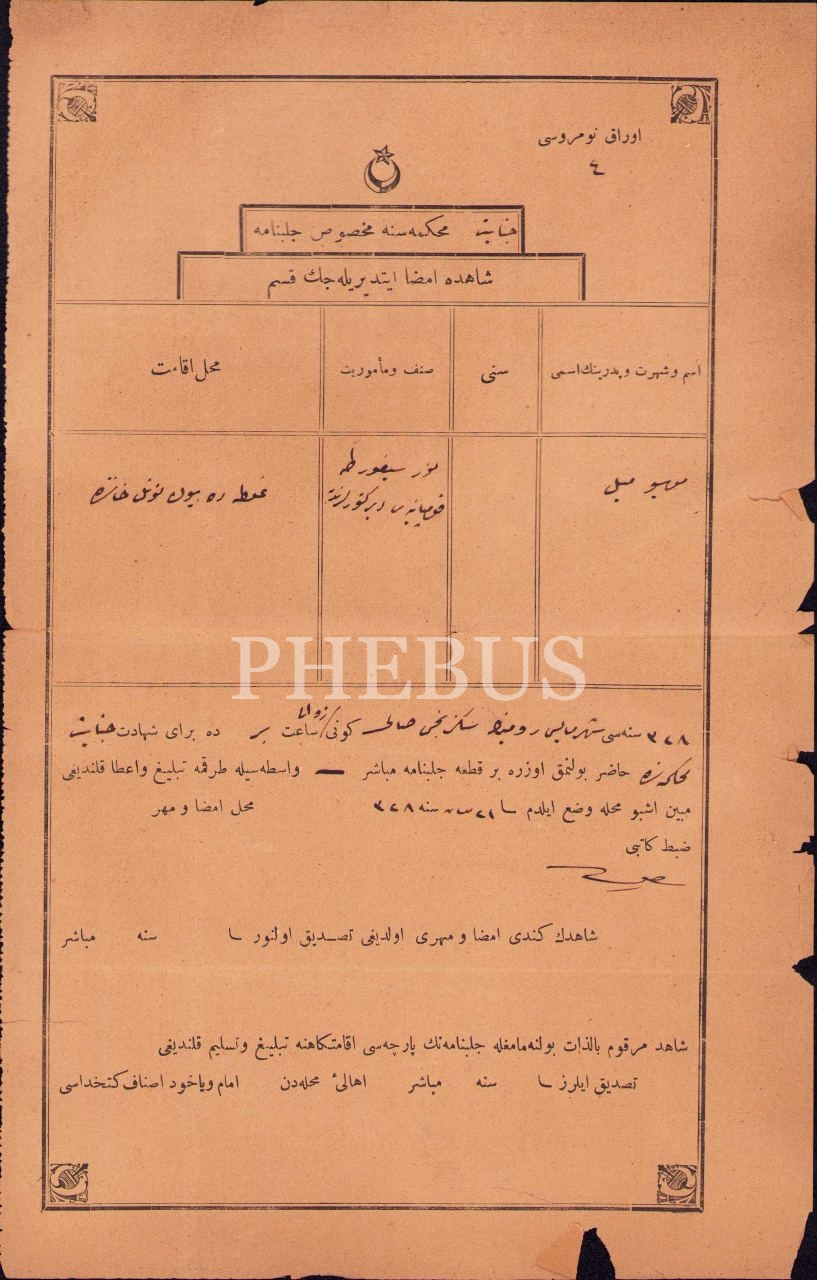 اوراق نومروسى
٤
جنايت محكمه‌سنه مخصوص جلبنامه
شاهده امضا ايتديريله‌جك قسم
اسم و شهرت و پدرينك اسمى
سنى
صنف و مأموريت
محل اقامت
موسيو ميل
سيغورطه
قومپانيه‌سى
غلطه ده
PHEBUS
٣٢٨ سنه‌سى شهر مايس رومينك سكزنجى صالى كونى زوالى ساعت بر ده براى شهادت جنايت
محكمه‌سنه حاضر بولنمق اوزره بر قطعه جلبنامه مباشر واسطه‌سيله طرفمه تبليغ و اعطا قلنديغى
مبين اشبو محله وضع ايلدم سنه ٣٢٨ محل امضا و مهر
ضبط كاتبى
شاهدك كندى امضا و مهرى اولديغى تصديق اولنور سنه مباشر
شاهد مرقوم بالذات بولنه‌مامغله جلبنامه‌نك پارچه‌سى اقامتكاهنه تبليغ و تسليم قلنديغى
تصديق ايلرز سنه مباشر اهالئ محله‌دن امام و ياخود اصناف كتخداسى